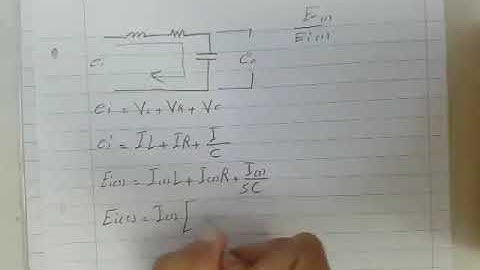 E(s)
Ei(s)
ei
eo
ei = VL + VR + VC
ei = IL + IR + I/C
Ei(s) = I(s)L + I(s)R + I(s)/SC
Ei(s) = I(s) [